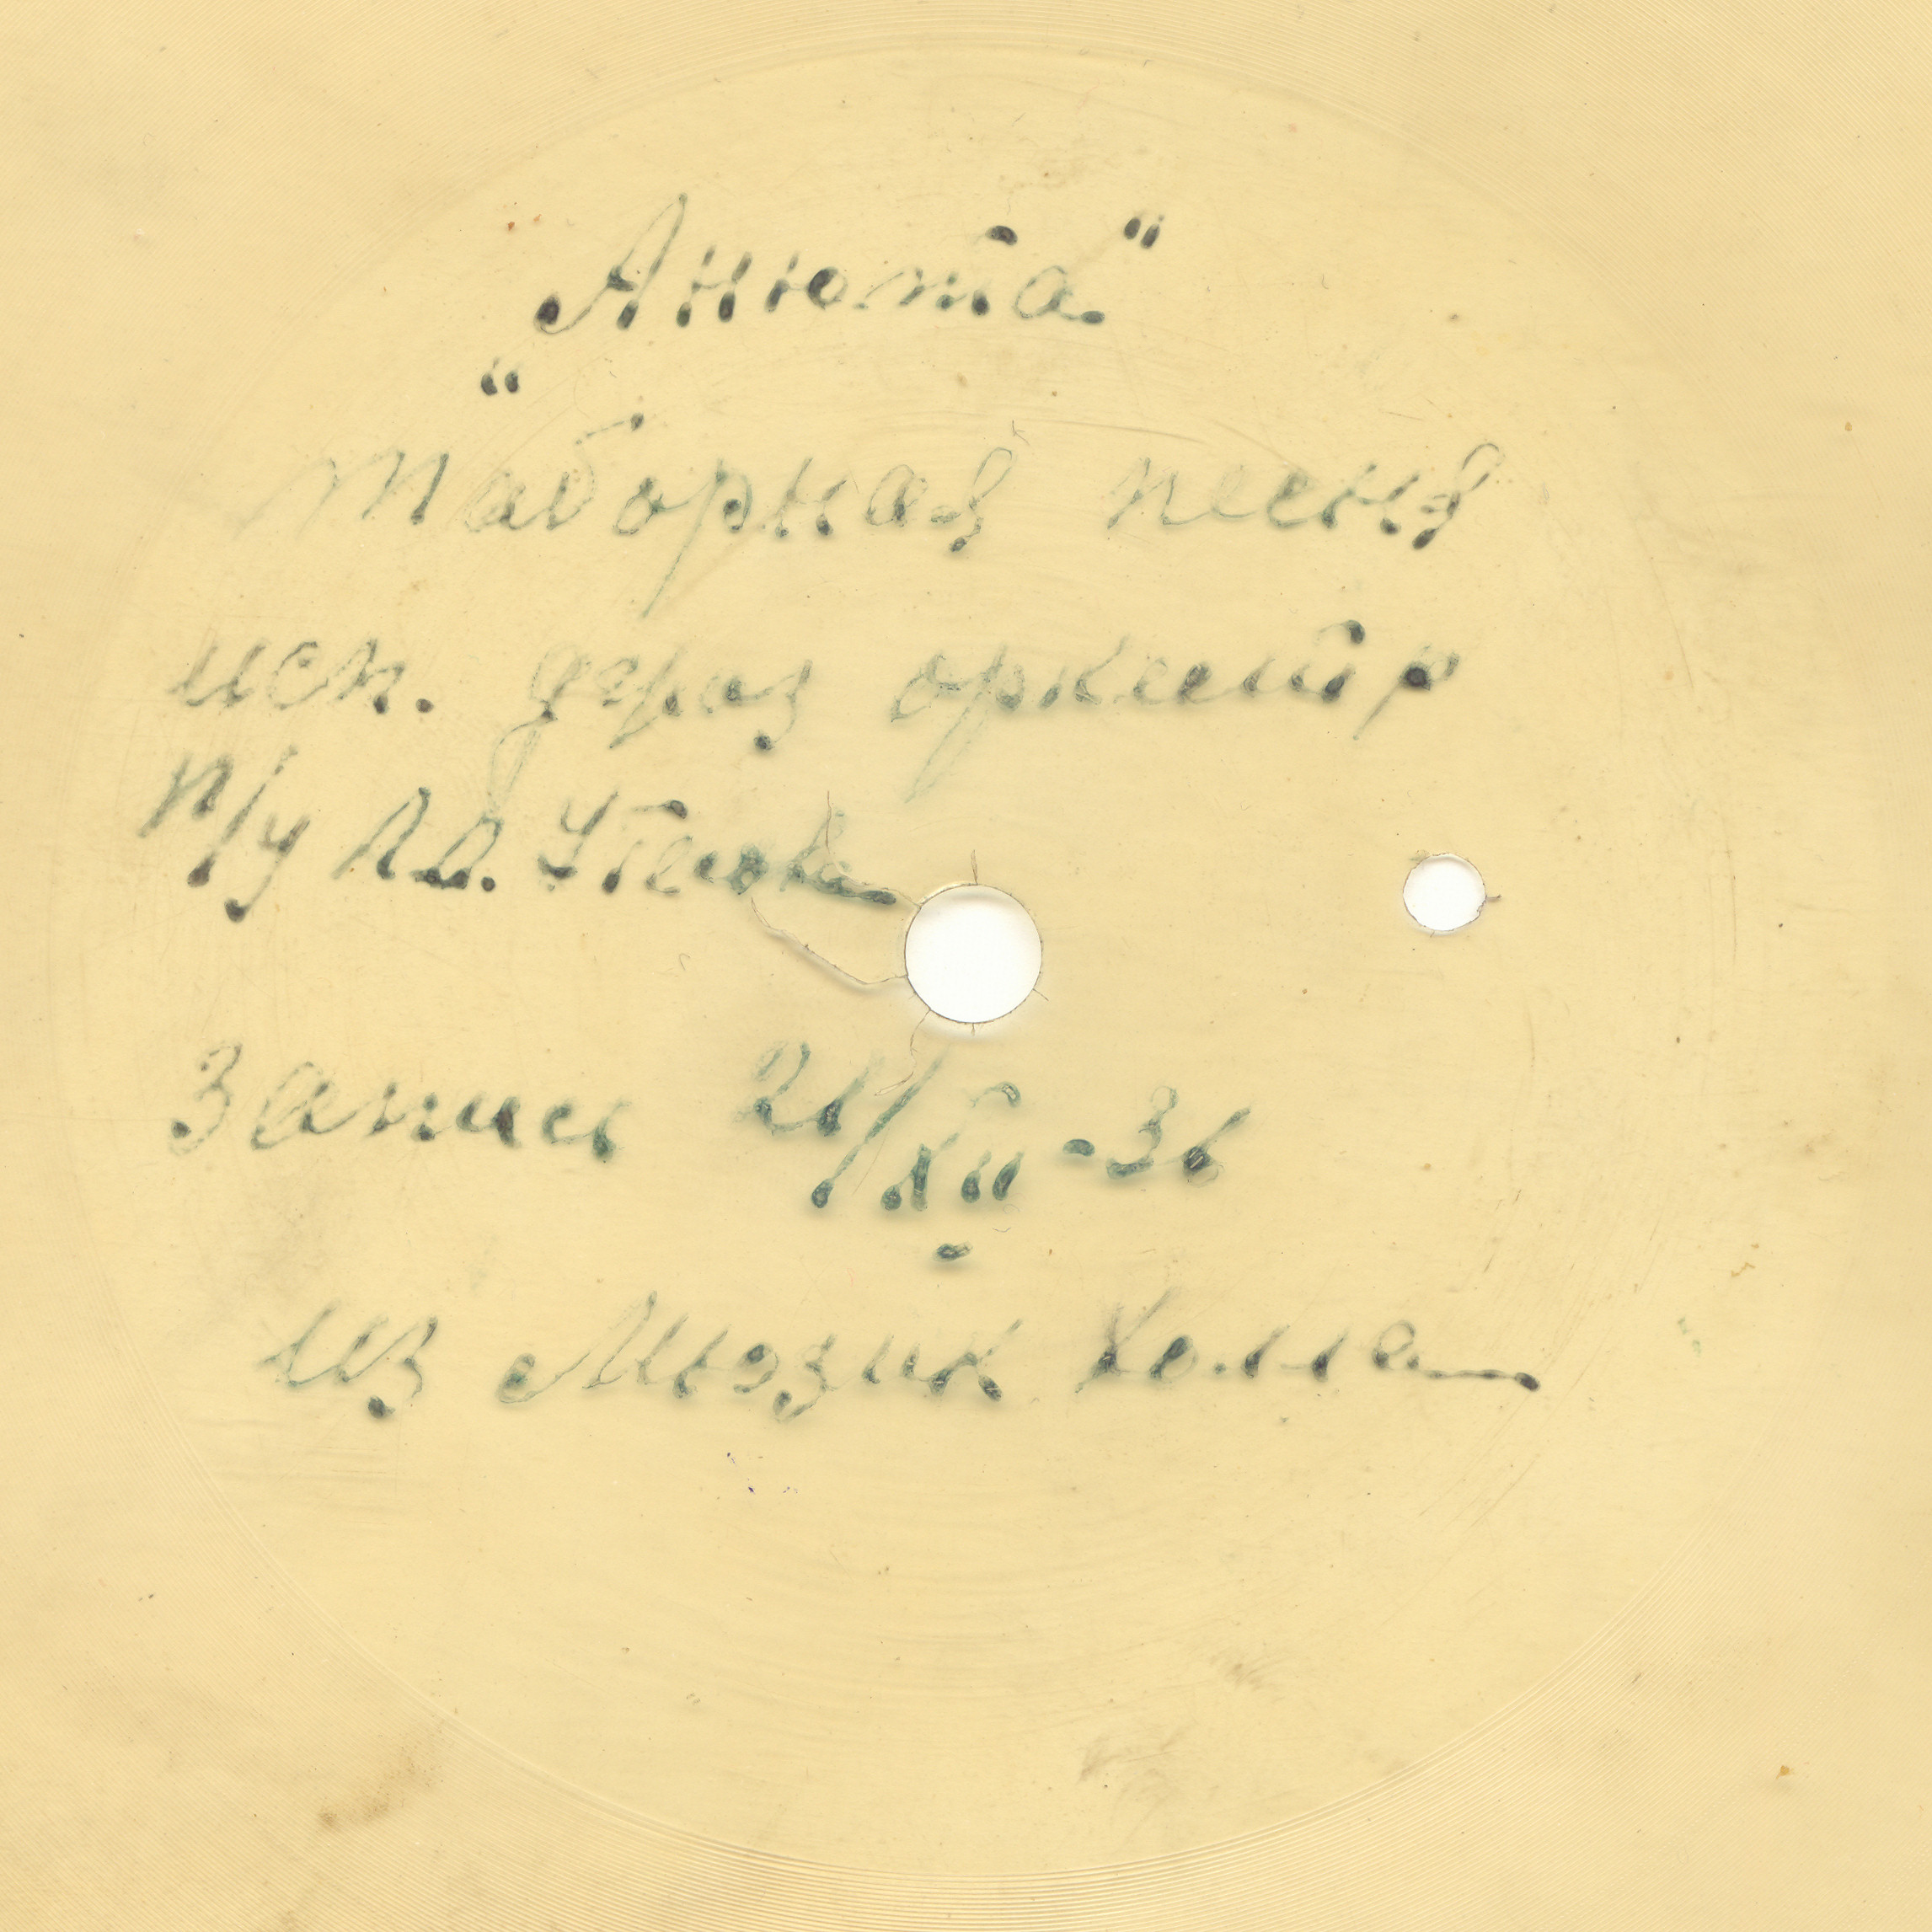 „Анюта"
"таборная песня
исп. джаз оркестр
п/у Л.О. Утесова
Запись 26/XII-36
из Мюзик Холла